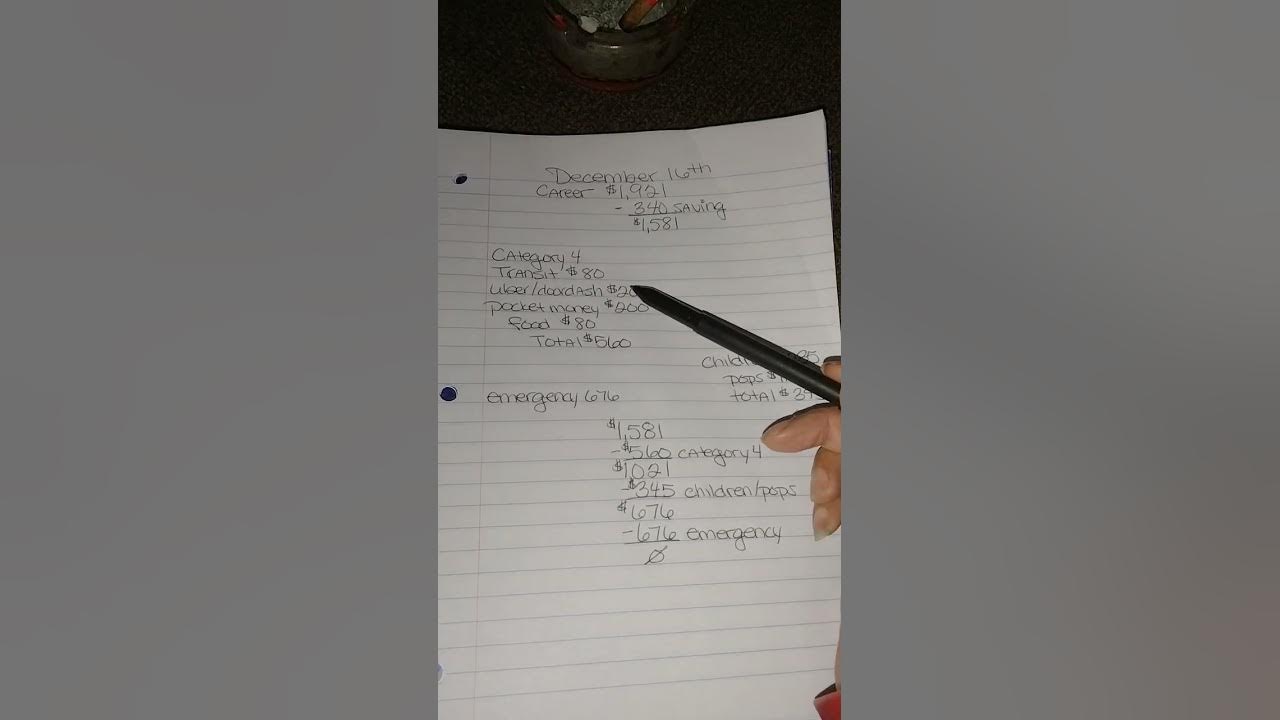 December 16th
Career $1,921
- 340 saving
$1,581
Category 4
Transit $80
uber/doordash $20
pocket money $200
food $80
Total $560
children
pops $
total $
emergency 676
$1,581
-$560 category 4
$1021
-$345 children/pops
$676
-676 emergency
0